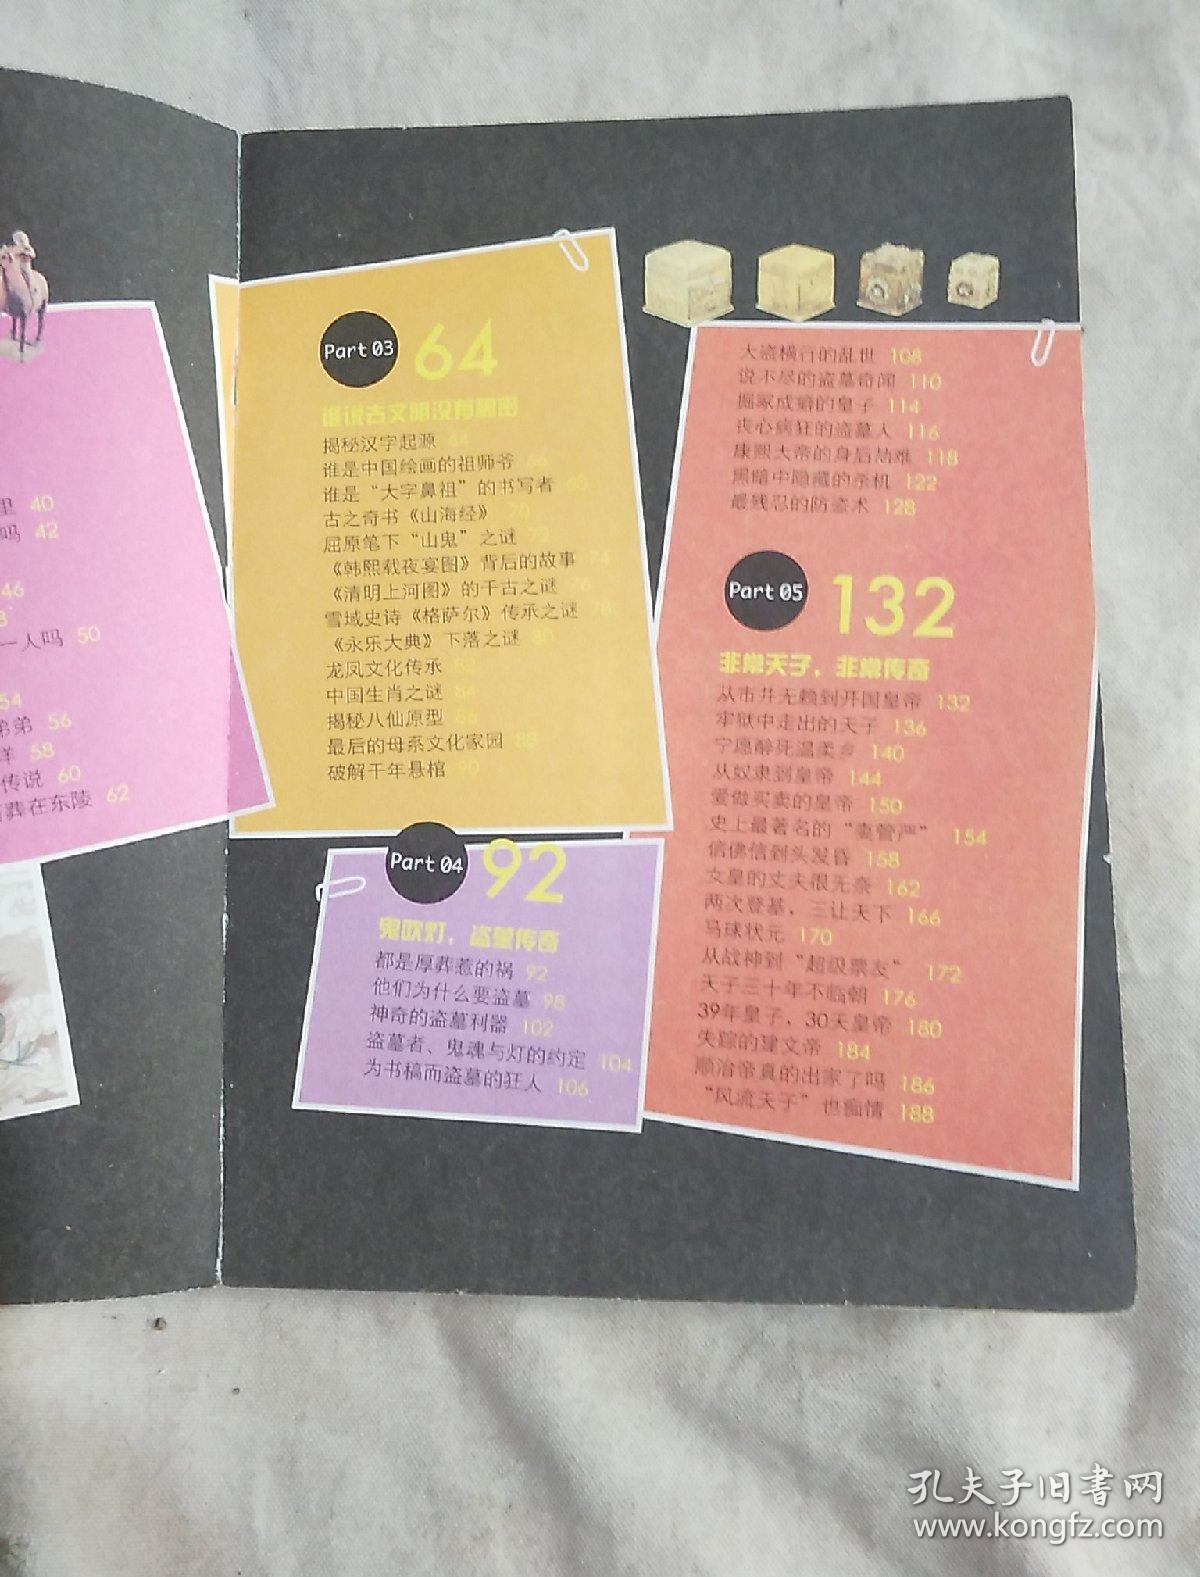 40
吗 42
46
一人吗 50
54
弟弟 56
58
传说 60
葬在东陵 62
Part 03
64
谁说古文明没有秘密
揭秘汉字起源 64
谁是中国绘画的祖师爷 66
谁是“大字鼻祖”的书写者 68
古之奇书《山海经》 70
屈原笔下“山鬼”之谜 72
《韩熙载夜宴图》背后的故事 74
《清明上河图》的千古之谜 76
雪域史诗《格萨尔》传承之谜 78
《永乐大典》下落之谜 80
龙凤文化传承 82
中国生肖之谜 84
揭秘八仙原型 86
最后的母系文化家园 88
破解千年悬棺 90
Part 04
92
鬼吹灯，盗墓传奇
都是厚葬惹的祸 92
他们为什么要盗墓 98
神奇的盗墓利器 102
盗墓者、鬼魂与灯的约定 104
为书稿而盗墓的狂人 106
大盗横行的乱世 108
说不尽的盗墓奇闻 110
掘冢成癖的皇子 114
丧心病狂的盗墓人 116
康熙大帝的身后劫难 118
黑暗中隐藏的杀机 122
最残忍的防盗术 128
Part 05
132
非常天子，非常传奇
从市井无赖到开国皇帝 132
牢狱中走出的天子 136
宁愿醉死温柔乡 140
从奴隶到皇帝 144
爱做买卖的皇帝 150
史上最著名的“妻管严” 154
信佛信到头发昏 158
女皇的丈夫很无奈 162
两次登基，三让天下 166
马球状元 170
从战神到“超级票友” 172
天子三十年不临朝 176
39年皇子，30天皇帝 180
失踪的建文帝 184
顺治帝真的出家了吗 186
“风流天子”也痴情 188
孔夫子旧书网
www.kongfz.com